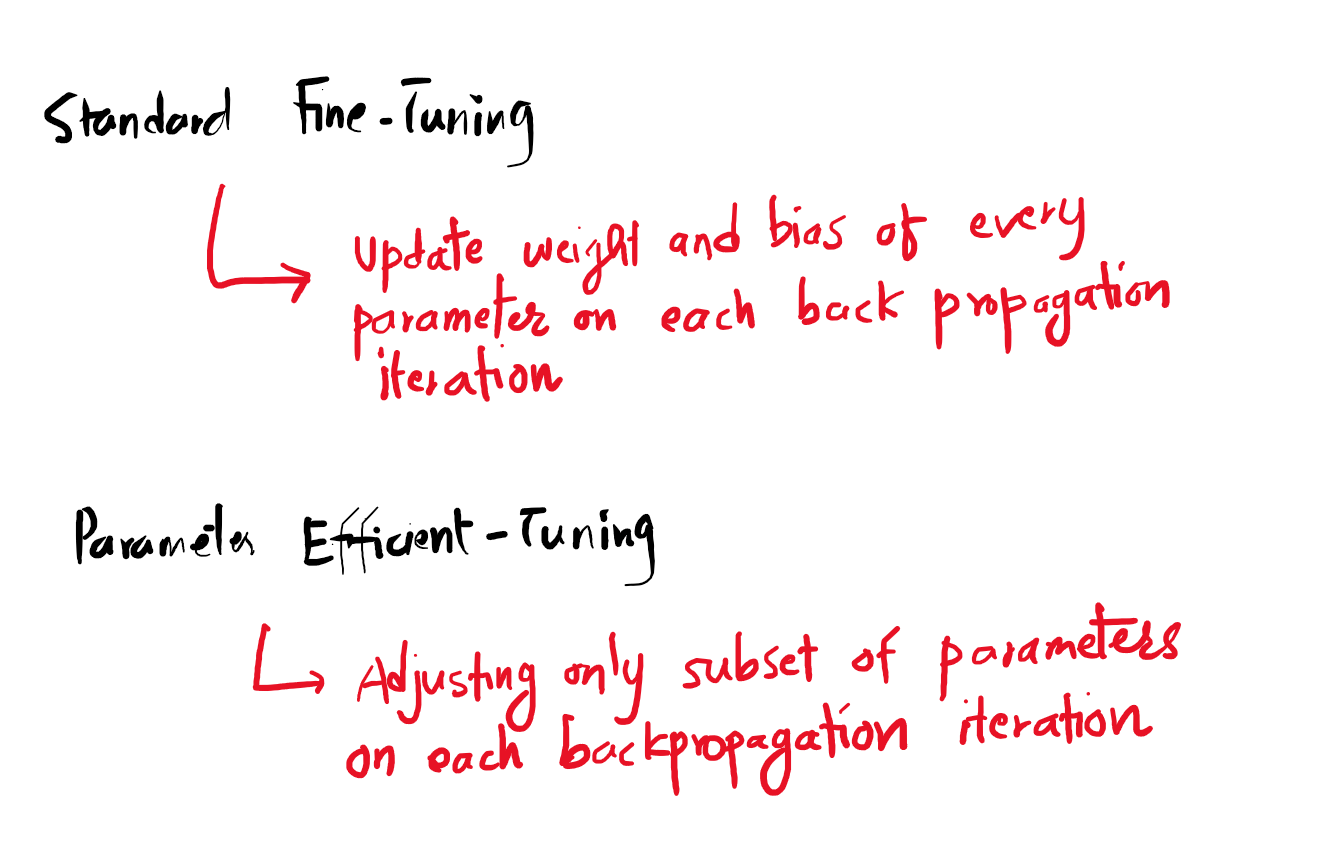 Standard Fine-Tuning
Update weight and bias of every
parameter on each back propagation
iteration
Parameter Efficient-Tuning
Adjusting only subset of parameters
on each backpropagation iteration